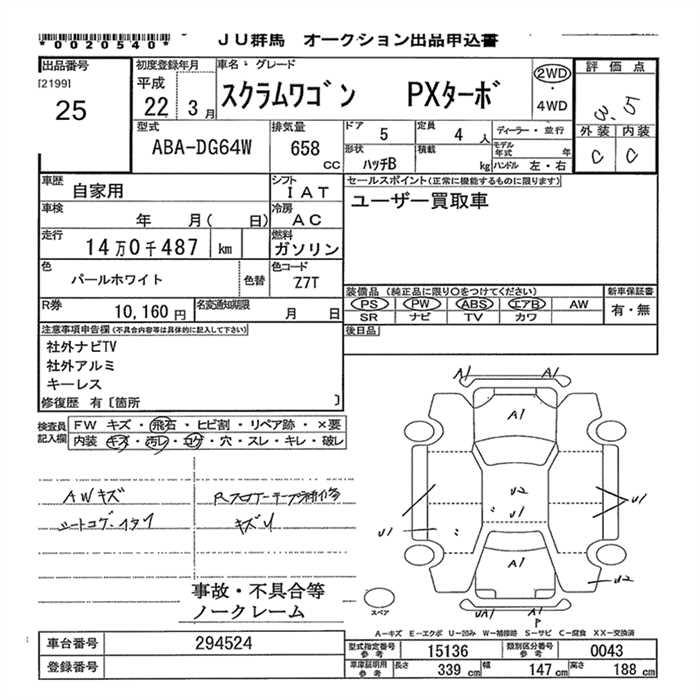 *0020540*
JU群馬 オークション出品申込書
出品番号
[2199]
25
初度登録年月
平成
22年 3月
車名・グレード
スクラムワゴン PXターボ
2WD
・
4WD
評価点
3.5
外装 内装
C C
型式
ABA-DG64W
排気量
658
cc
ドア
5
定員
4人
ディーラー・並行
形状
ハッチB
積載
kg
モデル年式 年
ハンドル 左・右
車歴
自家用
シフト
IAT
車検
年 月( 日)
冷房
AC
走行
14万0千487 km
燃料
ガソリン
色
パールホワイト
色替
色コード
Z7T
R券
10,160円
名変通知期限
月 日
セールスポイント(正常に機能するものに限ります)
ユーザー買取車
装備品(純正品に限り○をつけてください)
PS PW ABS エアB AW
SR ナビ TV カワ
新車保証書
有・無
後日品
注意事項申告欄(不具合内容等は具体的に記入して下さい)
社外ナビTV
社外アルミ
キーレス
修復歴 有〔箇所 〕
検査員記入欄
FW キズ・飛石・ヒビ割・リペア跡・×要
内装 キズ・汚レ・コゲ・穴・スレ・キレ・破レ
AWキズ
シートコゲ・イタミ
キズU
事故・不具合等
ノークレーム
A1 A1
A1
U2
U1
U1
U1
A1
U2
UA1 A1
P
スペア
A-キズ E-エクボ U-凹み W-補修跡 S-サビ C-腐食 XX-交換済
車台番号
294524
登録番号
型式指定番号参考
15136
類別区分番号参考
0043
車庫証明用参考
長さ 339 cm
幅 147 cm
高さ 188 cm